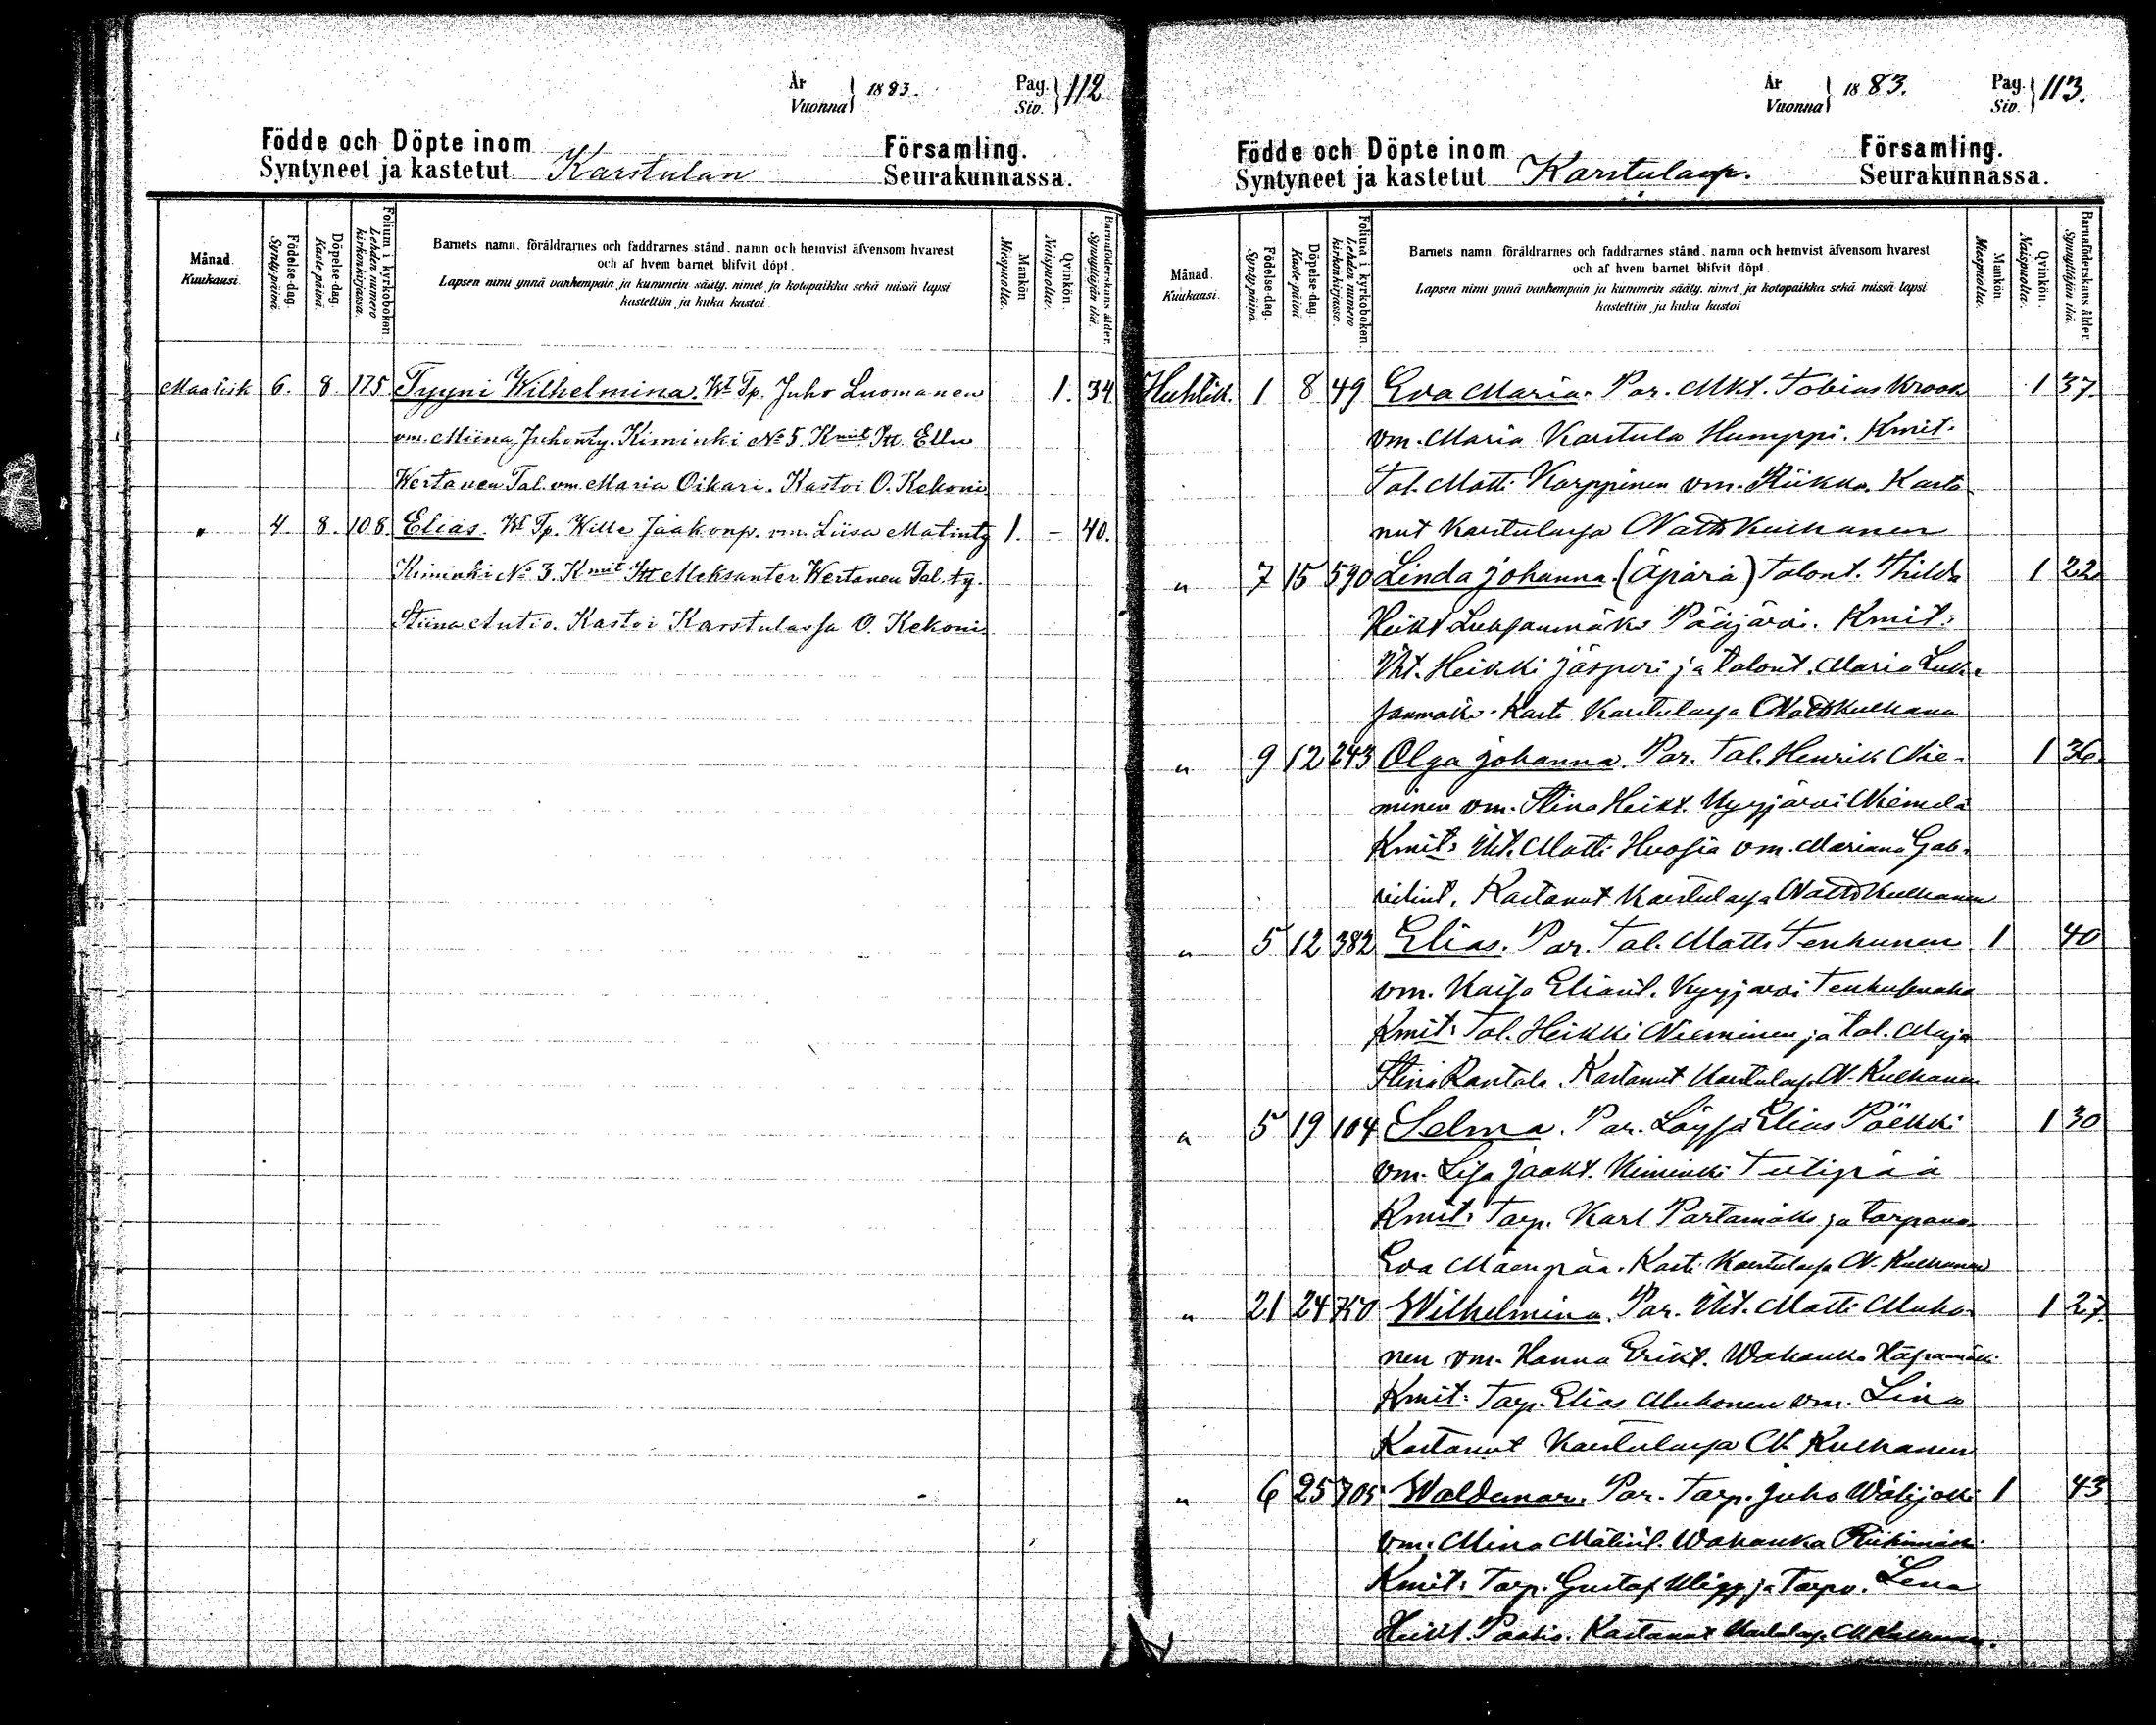 År
Vuonna } 1883.
Pag.
Siv. } 112
Födde och Döpte inom
Syntyneet ja kastetut Karstulan
Församling.
Seurakunnassa.
Månad.
Kuukausi.
Födelse-dag.
Synty-päivä.
Döpelse-dag.
Kaste-päivä.
Folium i kyrkoboken.
Lehden numero
kirkonkirjassa.
Barnets namn, föräldrarnes och faddrarnes stånd, namn och hemvist äfvensom hvarest
och af hvem barnet blifvit döpt.
Lapsen nimi ynnä vanhempain ja kummein sääty, nimet ja kotopaikka sekä missä lapsi
kastettiin ja kuka kastoi
Mankön
Miespuolia.
Qvinkön.
Naispuolia.
Barnaföderskans ålder.
Synnyttäjän ikä.
Maalisk 6. 8. 175. Tyyni Wilhelmina. Wt Tp. Juho Luomanen 1. 34
vm. Miina Juhonty. Kiminki No 5. Kmit Itt. Ellu
Wertanen Tal. vm. Maria Oikari. Kastoi O. Kekoni
" 4. 8. 108. Elias. Wt Tp. Wille Jaakonp. vm. Liisa Matinty 1. - 40.
Kiminki No 3. Kmit Itt Aleksanter Wertanen Tal. ty.
Stiina Autio. Kastoi Karstulassa O. Kekoni
År
Vuonna } 1883.
Pag.
Siv. } 113.
Födde och Döpte inom
Syntyneet ja kastetut Karstulassa.
Församling.
Seurakunnassa.
Månad.
Kuukausi.
Födelse-dag.
Synty-päivä.
Döpelse-dag.
Kaste-päivä
Folium i kyrkoboken.
Lehden numero
kirkonkirjassa.
Barnets namn, föräldrarnes och faddrarnes stånd, namn och hemvist äfvensom hvarest
och af hvem barnet blifvit döpt.
Lapsen nimi ynnä vanhempain ja kummein sääty, nimet ja kotopaikka sekä missä lapsi
kastettiin ja kuka kastoi
Mankön.
Miespuolia.
Qvinkön.
Naispuolia.
Barnaföderskans ålder.
Synnyttäjän ikä.
Huhtik. 1 8 49 Eva Maria. Par. Mkt. Tobias Krook 1 37.
vm. Maria Karstula Humppi. Kmit.
Tal. Matti Karppinen vm. Riikka. Kasta
nut Karstulassa Matts Kulhanen
" 7 15 590 Linda Johanna. (Äpärä) Talont. Thilda 1 22.
Heikt Luksanmäki Pääjärvi. Kmit:
Itt. Heikki Jäsperi ja talont. Maria Luk-
sanmäki. Kasti Karstulassa Matts Kulhanen
" 9 12 243 Olga Johanna. Par. Tal. Henrik Nie- 1 36.
minen vm. Stina Heikt. Kyyjärvi Niemelä
Kmit: Itt. Matti Huosia vm. Mariana Gab-
rielint. Kastanut Karstulassa Matts Kulhanen
" 5 12 382 Elias. Par. Tal. Matts Tenhunen 1 40
vm. Kaisa Eliant. Kyyjärvi Tenhusenaho
Kmit: Tal. Heikki Nieminen ja tal. Maja
Stina Rantala. Kastanut Karstulassa M. Kulhanen
" 5 19 104 Selma. Par. Löysä Elias Pöekki 1 30
vm. Lisa Jaakt. Kiminki Tiitipää
Kmit: Tarp. Karl Partamäki ja torpana
Eva Mäenpää. Kasti Karstulassa M. Kulhanen
" 21 24 750 Wilhelmina. Par. Itt. Matti Muho- 1 27.
nen vm. Hanna Erikt. Wahanka
Kmit: Tarp. Elias Muhonen vm. Lina
Kastanut Karstulassa M. Kulhanen
" 6 25 705 Waldemar. Par. Tarp. Juho Wälijoki 1 43
vm. Mina Matint. Wahanka Riihimäki
Kmit: Tarp. Gustaf ja Tarpv. Lena
Heikt. Kastanut Karstulassa M. Kulhanen.